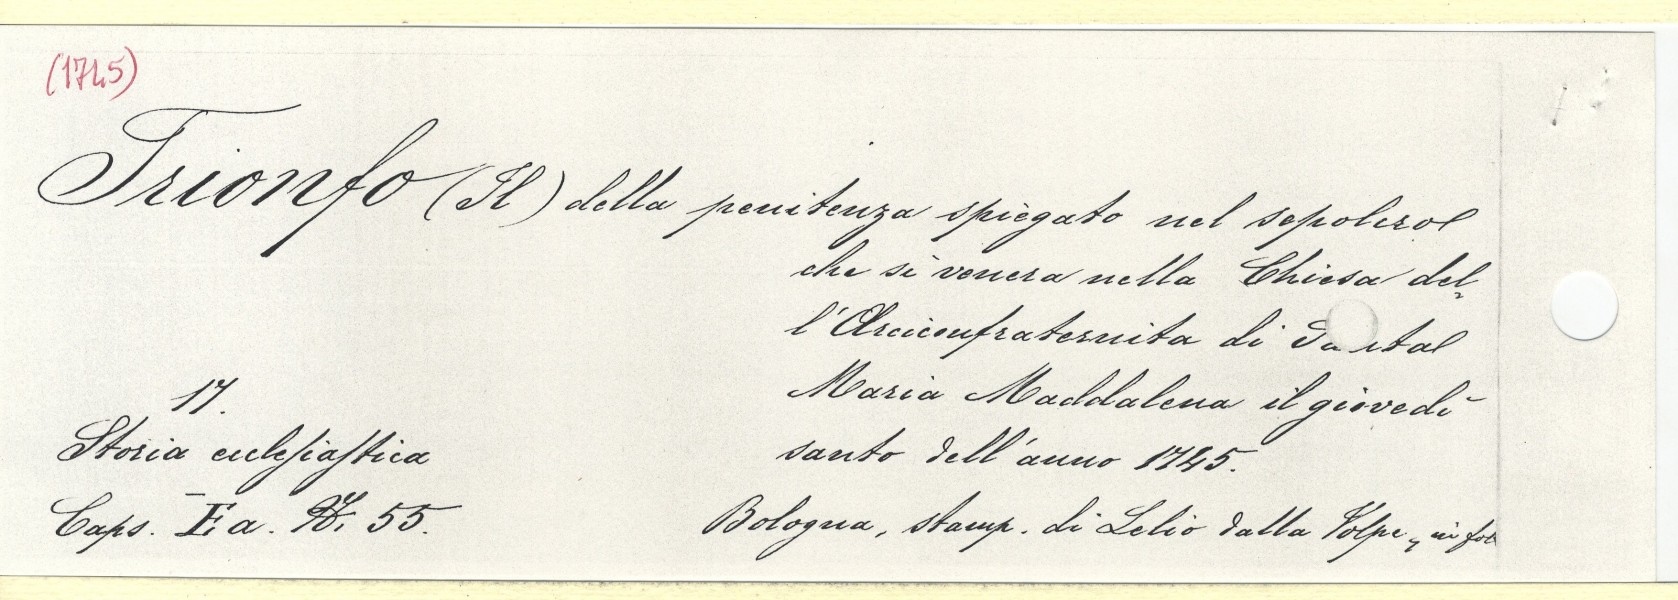 (1745)
Trionfo (Il) della penitenza spiegato nel sepolcro
che si venera nella Chiesa del=
l'Arciconfraternita di
Maria Maddalena il giovedì
santo dell'anno 1745.
17.
Storia ecclesiastica
Caps. 55.
Bologna, stamp. di Lelio dalla Volpe, in fol